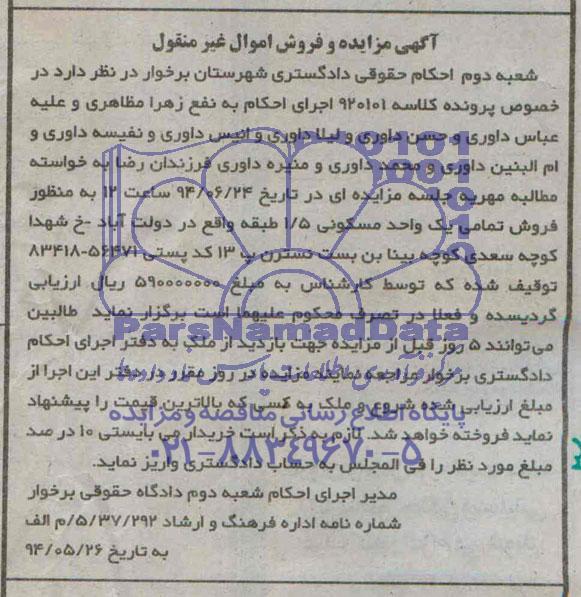 آگهی مزایده و فروش اموال غیر منقول
شعبه دوم احکام حقوقی دادگستری شهرستان برخوار در نظر دارد در
خصوص پرونده کلاسه ۹۲۰۱۰۱ اجرای احکام به نفع زهرا مظاهری و علیه
عباس داوری و حسن داوری و لیلا داوری و انیس داوری و نفیسه داوری و
ام البنین داوری و محمد داوری و منیره داوری فرزندان رضا به خواسته
مطالبه مهریه جلسه مزایده ای در تاریخ ۹۴/۰۶/۲۴ ساعت ۱۲ به منظور
فروش تمامی یک واحد مسکونی ۱/۵ طبقه واقع در دولت آباد -خ شهدا
کوچه سعدی کوچه بینا بن بست نسترن پ ۱۳ کد پستی ۵۶۴۷۱-۸۳۴۱۸
توقیف شده که توسط کارشناس به مبلغ ۵۹۰۰۰۰۰۰۰ ریال ارزیابی
گردیسده و فعلا در تصرف محکوم علیهما است برگزار نماید طالبین
ParsNamadData
می‌توانند ۵ روز قبل از مزایده جهت بازدید از ملک به دفتر اجرای احکام
دادگستری برخوار مراجعه نمایند مزایده در روز مقرر در دفتر این اجرا از
مبلغ ارزیابی شده شروع و ملک به کسی که بالاترین قیمت را پیشنهاد
پایگاه اطلاع رسانی مناقصه و مزایده
نماید فروخته خواهد شد. لازم به ذکر است خریدار می بایستی ۱۰ در صد
۰۲۱-۸۸۳۴۹۶۷۰-۵
مبلغ مورد نظر را فی المجلس به حساب دادگستری واریز نماید.
مدیر اجرای احکام شعبه دوم دادگاه حقوقی برخوار
شماره نامه اداره فرهنگ و ارشاد ۵/۳۷/۲۹۲/م الف
به تاریخ ۹۴/۰۵/۲۶